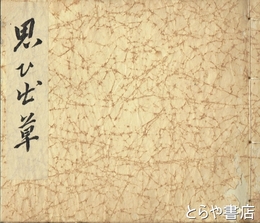 思ひ出草
とらや書店